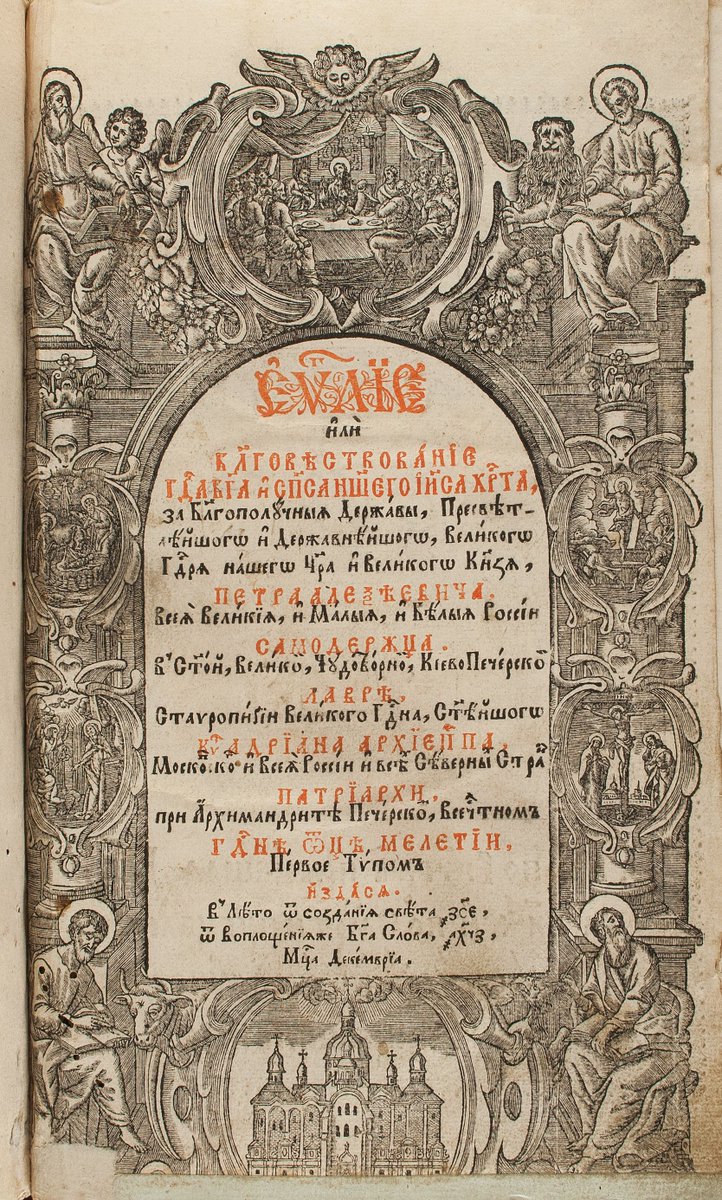 Є҆ѵⷢ҇лїє
и҆лѝ
Бл҃говѣствова́нїе
Гдⷭ҇а Бг҃а и҆ Сп҃са на́шегѡ І҆и҃са Хрⷭ҇та̀,
за Бл҃гополꙋ́чныѧ Держа́вы, Пресвѣт-
лѣ́йшогѡ и҆ Державнѣ́йшогѡ, вели́когѡ
Гдⷭ҇рѧ на́шегѡ Цр҃ѧ и҆ вели́когѡ Кн҃зѧ,
ПЕТРА АЛЕѮѢЕВИЧА.
всеѧ̀ вели́кїѧ, и҆ Ма́лыѧ, и҆ Бѣ́лыѧ Рѡссі́и
САМОДЕРЖЦА.
въ Ст҃о́й, вели́ко, Чꙋдотво́рно, Кїевопече́рско
ЛАВРѢ,
Ставропигі́и вели́кого Гдⷭ҇на, Ст҃ѣ́йшогѡ
Кѷⷬ҇ АДРЇАНА АРХЇЕПⷭ҇ПА,
Моско́вско и҆ всеѧ̀ Рѡссі́и и҆ всѣ́ Сѣ́верны Стра́
ПАТРЇАРХИ,
при А҆рхимандри́тѣ Пече́рско, всечⷭ҇тномъ
Гдⷭ҇нѣ, Ѿцѣ̀, МЕЛЕТЇИ,
Первое Тѵпомъ
и҆зда́сѧ.
въ Лѣ́то ѿ созда́нїѧ свѣ́та ҂зсє,
ѿ воплоще́нїѧже Бг҃а Сло́ва, ҂ахчз,
Мцⷭ҇а Деке́мврїа.